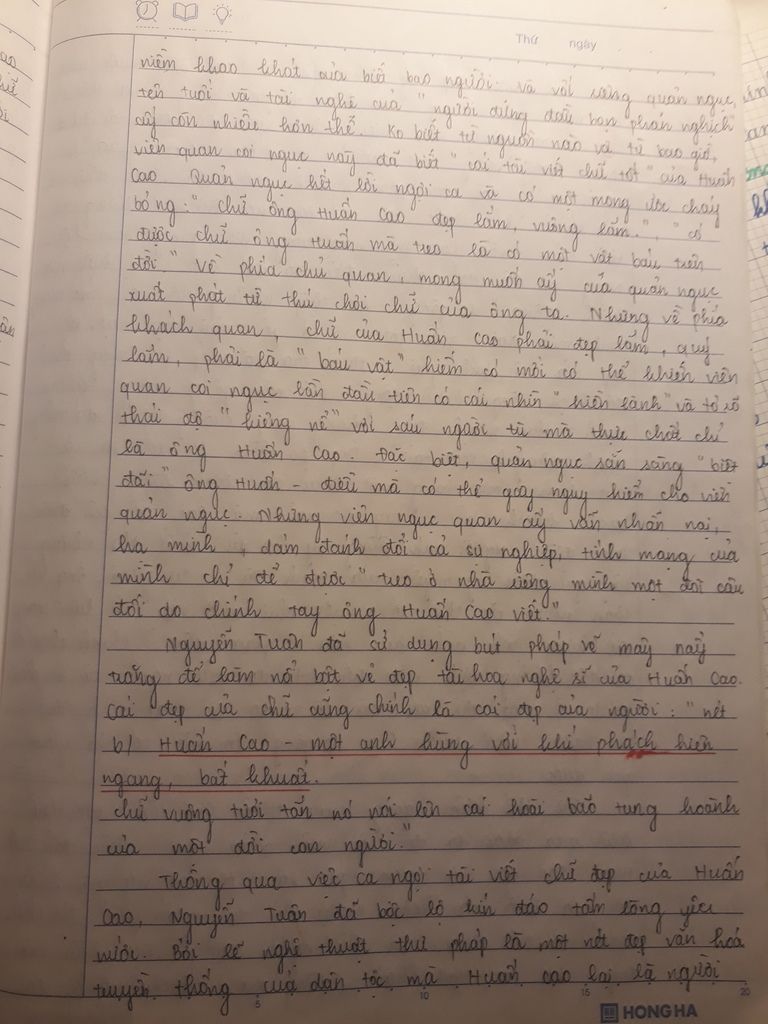 Thứ ngày
niềm khao khát của biết bao người. Và với riêng quản ngục,
tên tuổi và tài nghệ của "người đứng đầu bọn phản nghịch"
ấy còn nhiều hơn thế. Ko biết từ nguồn nào và từ bao giờ,
viên quan coi ngục này đã biết "cái tài viết chữ tốt" của Huấn
Cao. Quản ngục hết lời ngợi ca và có một mong ước cháy
bỏng: "chữ ông Huấn Cao đẹp lắm, vuông lắm.", "có
được chữ ông Huấn mà treo là có một vật báu trên
đời." Về phía chủ quan, mong muốn ấy của quản ngục
xuất phát từ thú chơi chữ của ông ta. Nhưng về phía
khách quan, chữ của Huấn Cao phải đẹp lắm, quý
lắm, phải là "báu vật" hiếm có mới có thể khiến viên
quan coi ngục lần đầu tiên có cái nhìn "hiền lành" và tỏ rõ
thái độ "kiêng nể" với sáu người tù mà thực chất chỉ
là ông Huấn Cao. Đặc biệt, quản ngục sẵn sàng "biệt
đãi" ông Huấn - điều mà có thể gây nguy hiểm cho viên
quản ngục. Nhưng viên ngục quan ấy vẫn nhẫn nại,
hạ mình, dám đánh đổi cả sự nghiệp, tính mạng của
mình chỉ để được "treo ở nhà riêng mình một đôi câu
đối do chính tay ông Huấn Cao viết."
Nguyễn Tuân đã sử dụng bút pháp vẽ mây nảy
trăng để làm nổi bật vẻ đẹp tài hoa nghệ sĩ của Huấn Cao.
Cái đẹp của chữ cũng chính là cái đẹp của người: "nét
b/ Huấn Cao - một anh hùng với khí phách hiên
ngang, bất khuất.
chữ vuông tươi tắn nó nói lên cái hoài bão tung hoành
của một đời con người."
Thông qua việc ca ngợi tài viết chữ đẹp của Huấn
Cao, Nguyễn Tuân đã bộc lộ kín đáo tấm lòng yêu
nước. Bởi lẽ nghệ thuật thư pháp là một nét đẹp văn hoá
truyền thống của dân tộc mà Huấn Cao lại là người
5 10 15 20
HONG HA